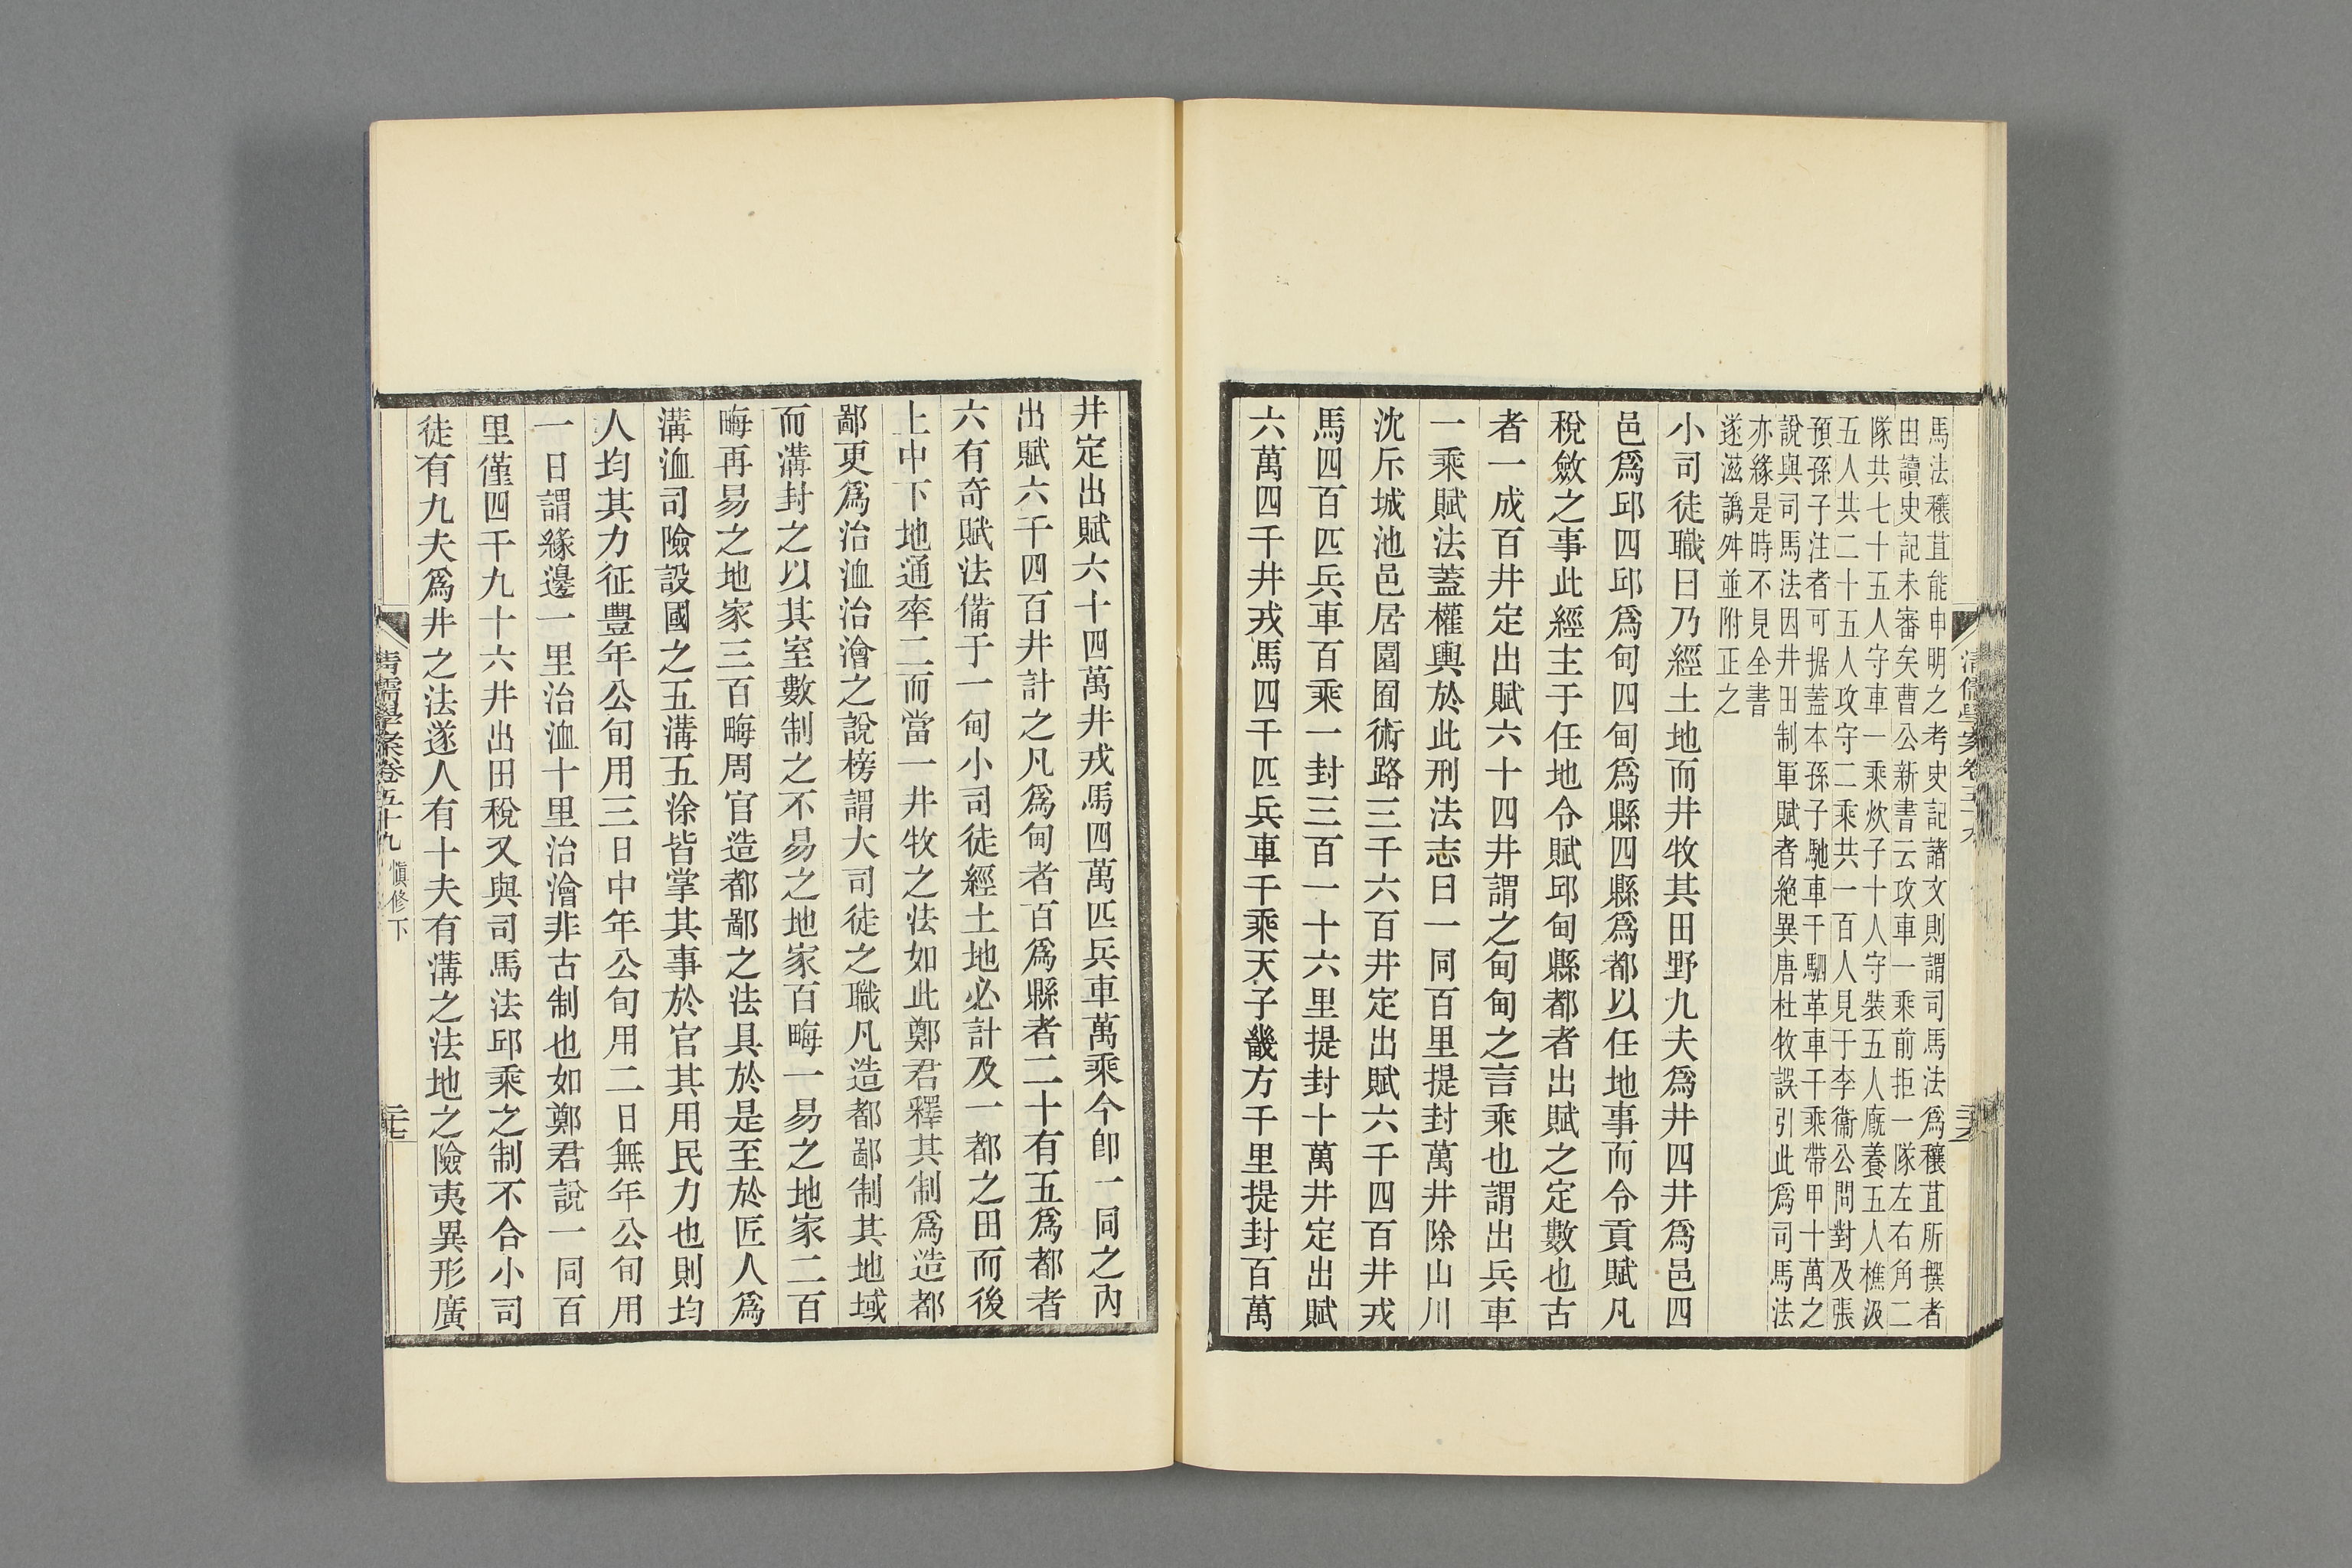 馬法穰苴能申明之考史記諸文則謂司馬法爲穰苴所撰者
由讀史記未審矣曹公新書云攻車一乘前拒一隊左右角二
隊共七十五人守車一乘炊子十人守裝五人廐養五人樵汲
五人共二十五人攻守二乘共一百人見于李衞公問對及張
預孫子注者可据蓋本孫子馳車千駟革車千乘帶甲十萬之
說與司馬法因井田制軍賦者絶異唐杜牧誤引此爲司馬法
亦緣是時不見全書
遂滋譌舛並附正之
小司徒職曰乃經土地而井牧其田野九夫爲井四井爲邑四
邑爲邱四邱爲甸四甸爲縣四縣爲都以任地事而令貢賦凡
稅斂之事此經主于任地令賦邱甸縣都者出賦之定數也古
者一成百井定出賦六十四井謂之甸甸之言乘也謂出兵車
一乘賦法蓋權輿於此刑法志曰一同百里提封萬井除山川
沈斥城池邑居園囿術路三千六百井定出賦六千四百井戎
馬四百匹兵車百乘一封三百一十六里提封十萬井定出賦
六萬四千井戎馬四千匹兵車千乘天子畿方千里提封百萬
井定出賦六十四萬井戎馬四萬匹兵車萬乘今卽一同之內
出賦六千四百井計之凡爲甸者百爲縣者二十有五爲都者
六有奇賦法備于一甸小司徒經土地必計及一都之田而後
上中下地通率二而當一井牧之法如此鄭君釋其制爲造都
鄙更爲治洫治澮之說榜謂大司徒之職凡造都鄙制其地域
而溝封之以其室數制之不易之地家百晦一易之地家二百
晦再易之地家三百晦周官造都鄙之法具於是至於匠人爲
溝洫司險設國之五溝五涂皆掌其事於官其用民力也則均
人均其力征豐年公旬用三日中年公旬用二日無年公旬用
一日謂緣邊一里治洫十里治澮非古制也如鄭君說一同百
里僅四千九十六井出田稅又與司馬法邱乘之制不合小司
徒有九夫爲井之法遂人有十夫有溝之法地之險夷異形廣
清儒學案卷五十九 愼修下
二十七